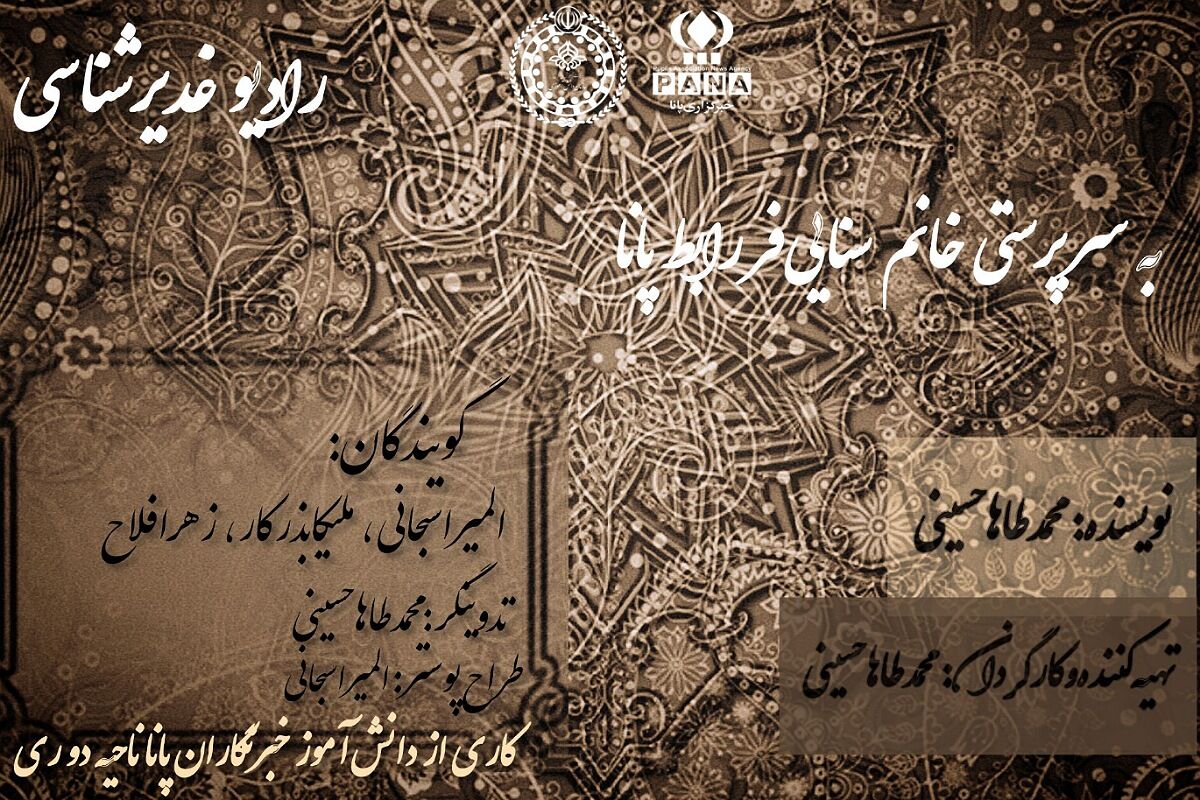 رادیو غدیرشناسی
Pupils Association News Agency
PANA
خبرگزاری پانا
به سرپرستی خانم سنایی‌فر رابط پانا
گویندگان:
المیرا سبحانی، ملیکا بذرکار، زهرا فلاح
تدوینگر: محمدطاها حسینی
طراح پوستر: المیرا سبحانی
کاری از دانش آموز خبرنگاران پانا ناحیه دو ری
نویسنده: محمدطاها حسینی
تهیه کننده و کارگردان: محمدطاها حسینی